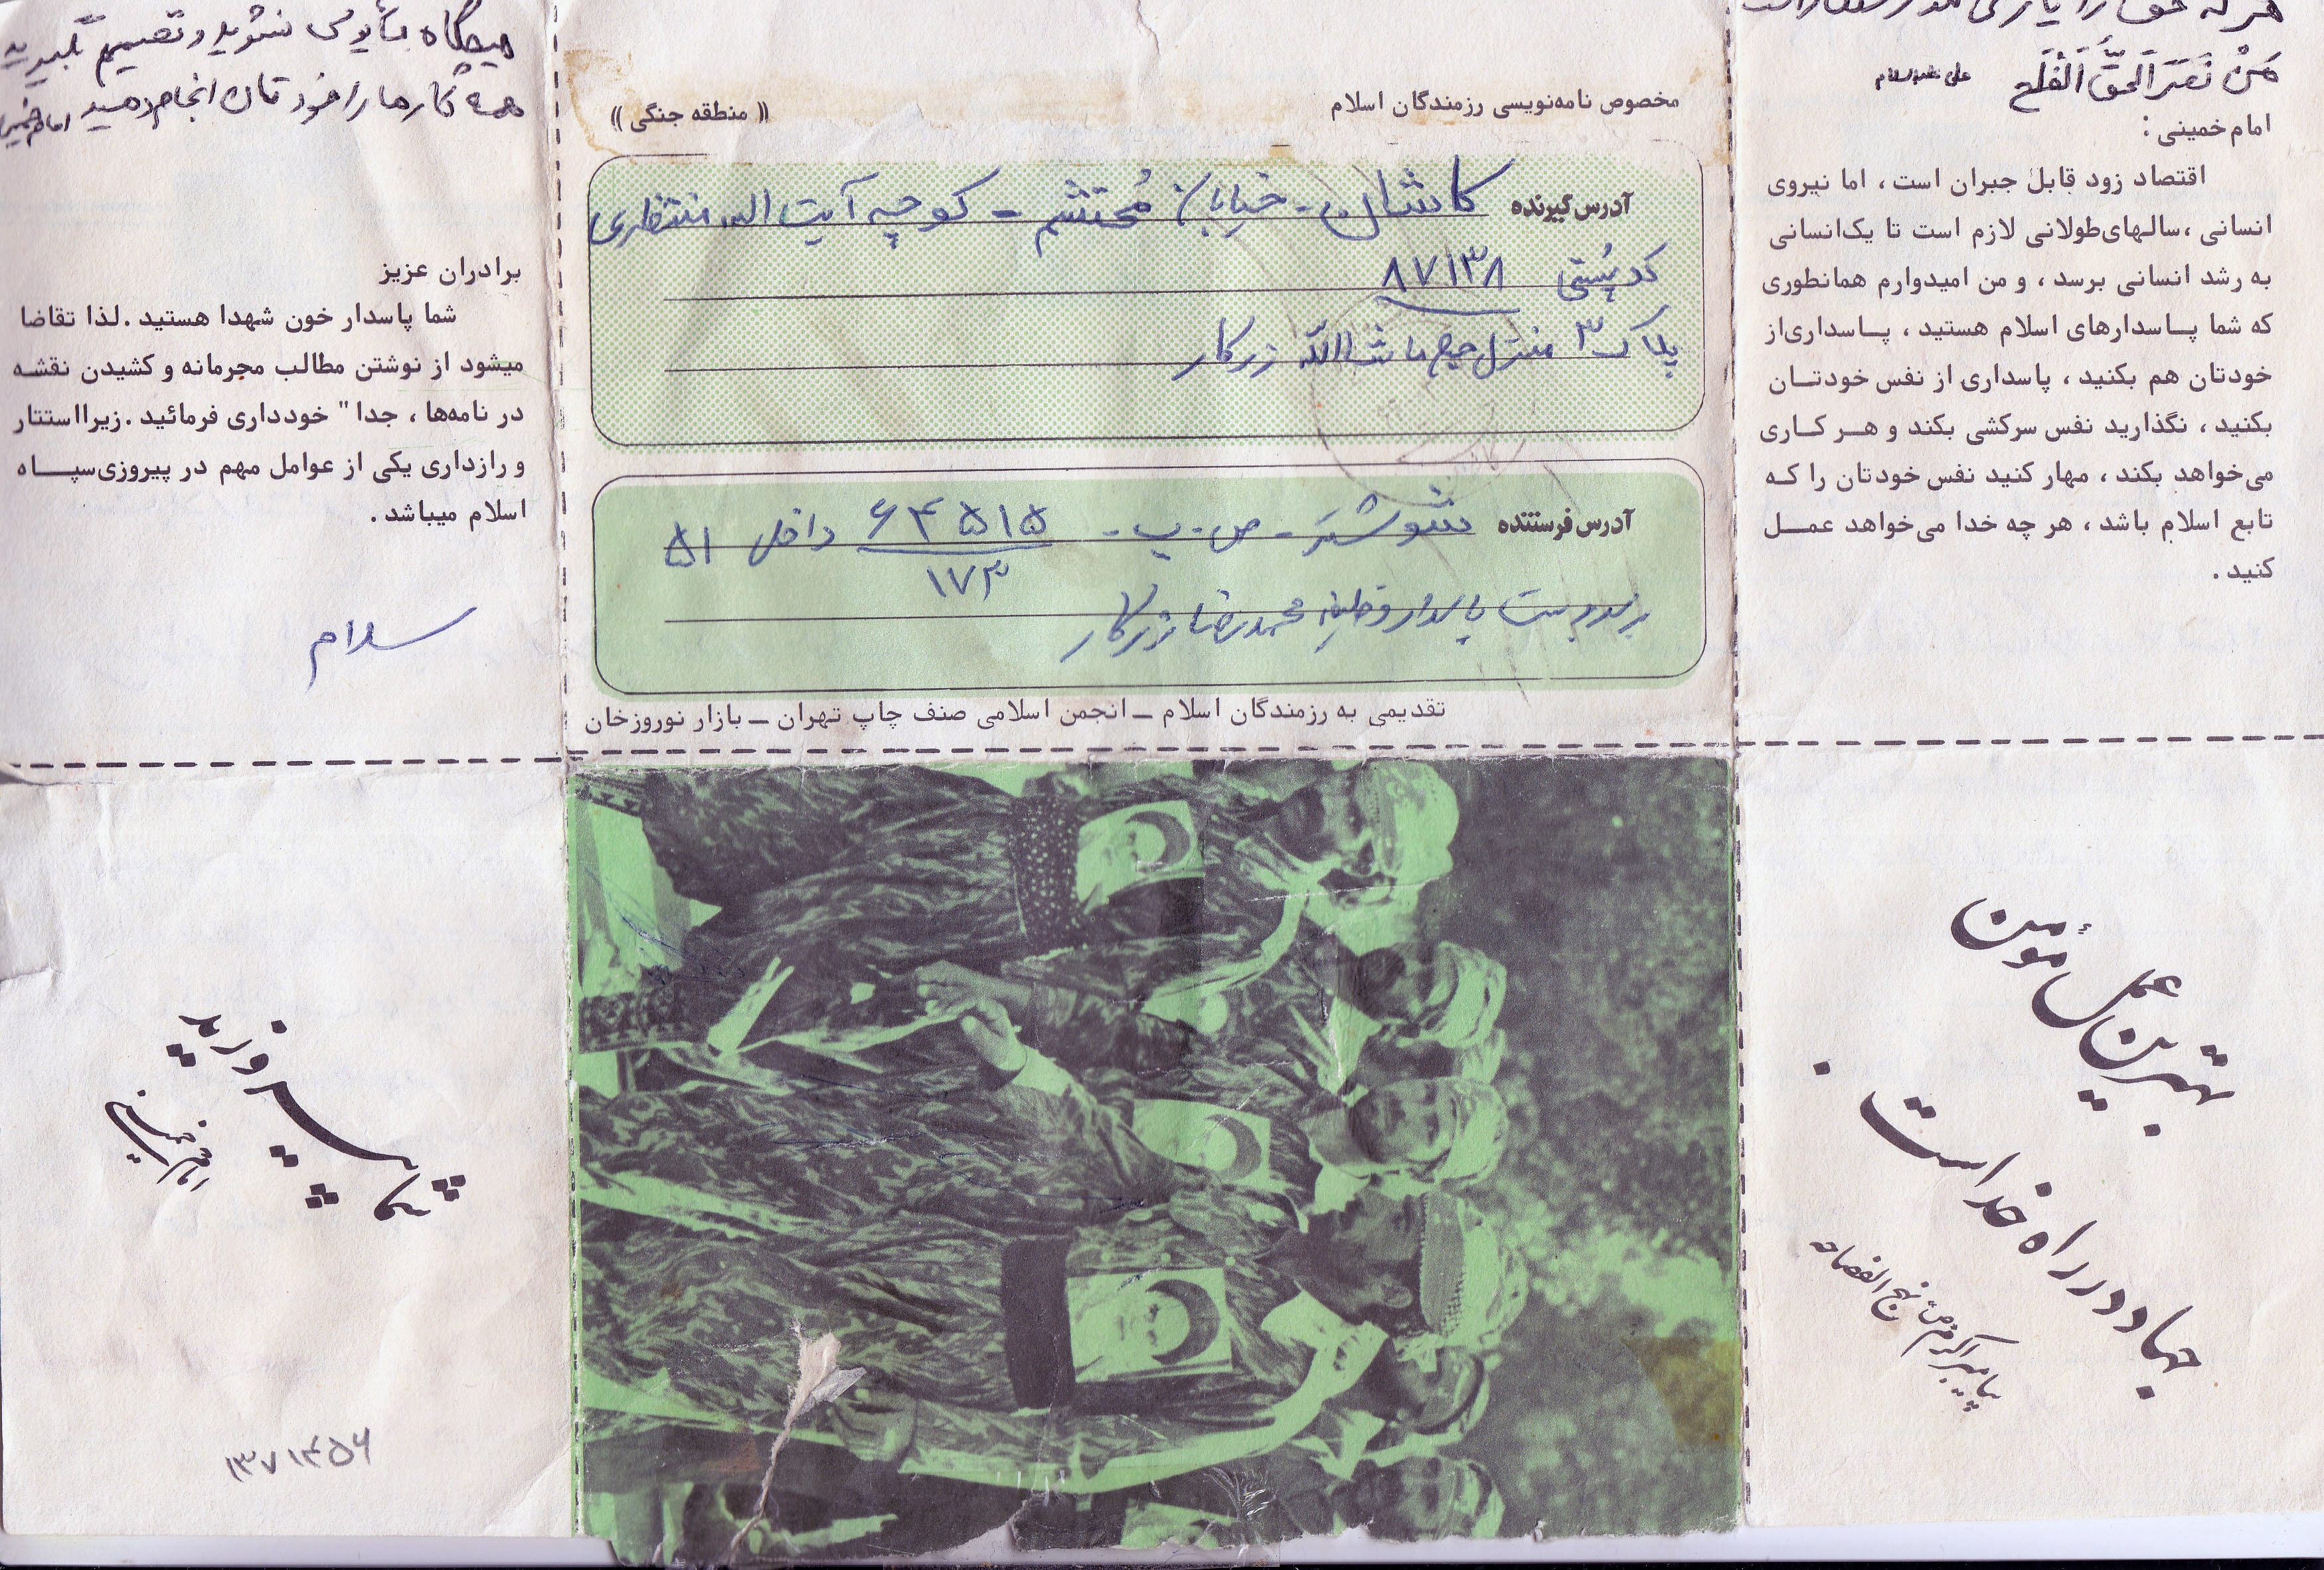 مَنْ نَصَرَ الحَقَّ اَفْلَحَ علی علیه‌السلام
امام خمینی :
اقتصاد زود قابل جبران است ، اما نیروی
انسانی ،سالهای‌طولانی لازم است تا یک‌انسانی
به رشد انسانی برسد ، و من امیدوارم همانطوری
که شما پــاسدارهای اسلام هستید ، پـاسداری‌از
خودتان هم بکنید ، پاسداری از نفس خودتــان
بکنید ، نگذارید نفس سرکشی بکند و هــر کـاری
می‌خواهد بکند ، مهار کنید نفس خودتان را کـه
تابع اسلام باشد ، هر چه خدا می‌خواهد عمــل
کنید .
مخصوص نامه‌نویسی رزمندگان اسلام
(( منطقه جنگی ))
آدرس گیرنده کاشان - خیابان مُحتشم - کوچه آیت الله منتظری
کد پُستی ۸۷۱۳۸
پلاک ۳ منزل حاج ماشاالله زرکار
آدرس فرستنده شوشتَر - ص . پ - ۶۴۵۱۵ داخل ۵۱
۱۷۳
برسد بدست پاسدار وظیفه محمدرضا زرکار
تقدیمی به رزمندگان اسلام ــ انجمن اسلامی صنف چاپ تهران ــ بازار نوروزخان
هیچگاه مأیوس نشوید و تصمیم بگیرید
همه کارها را خودتان انجام دهید امام خمینی
برادران عزیز
شما پاسدار خون شهدا هستید .لذا تقاضا
میشود از نوشتن مطالب مجرمانه و کشیدن نقشـه
در نامه‌ها ، جدا " خودداری فرمائید .زیرااستتار
و رازداری یکی از عوامل مهم در پیروزی‌سپــاه
اسلام میباشد .
سلام
بهترین عمل مؤمن
جهاد در راه خداست .
پیامبر اکرم (ص) نهج الفصاحه
شما پیروزید
امام خمینی
۱۳۷۱۴۵۶